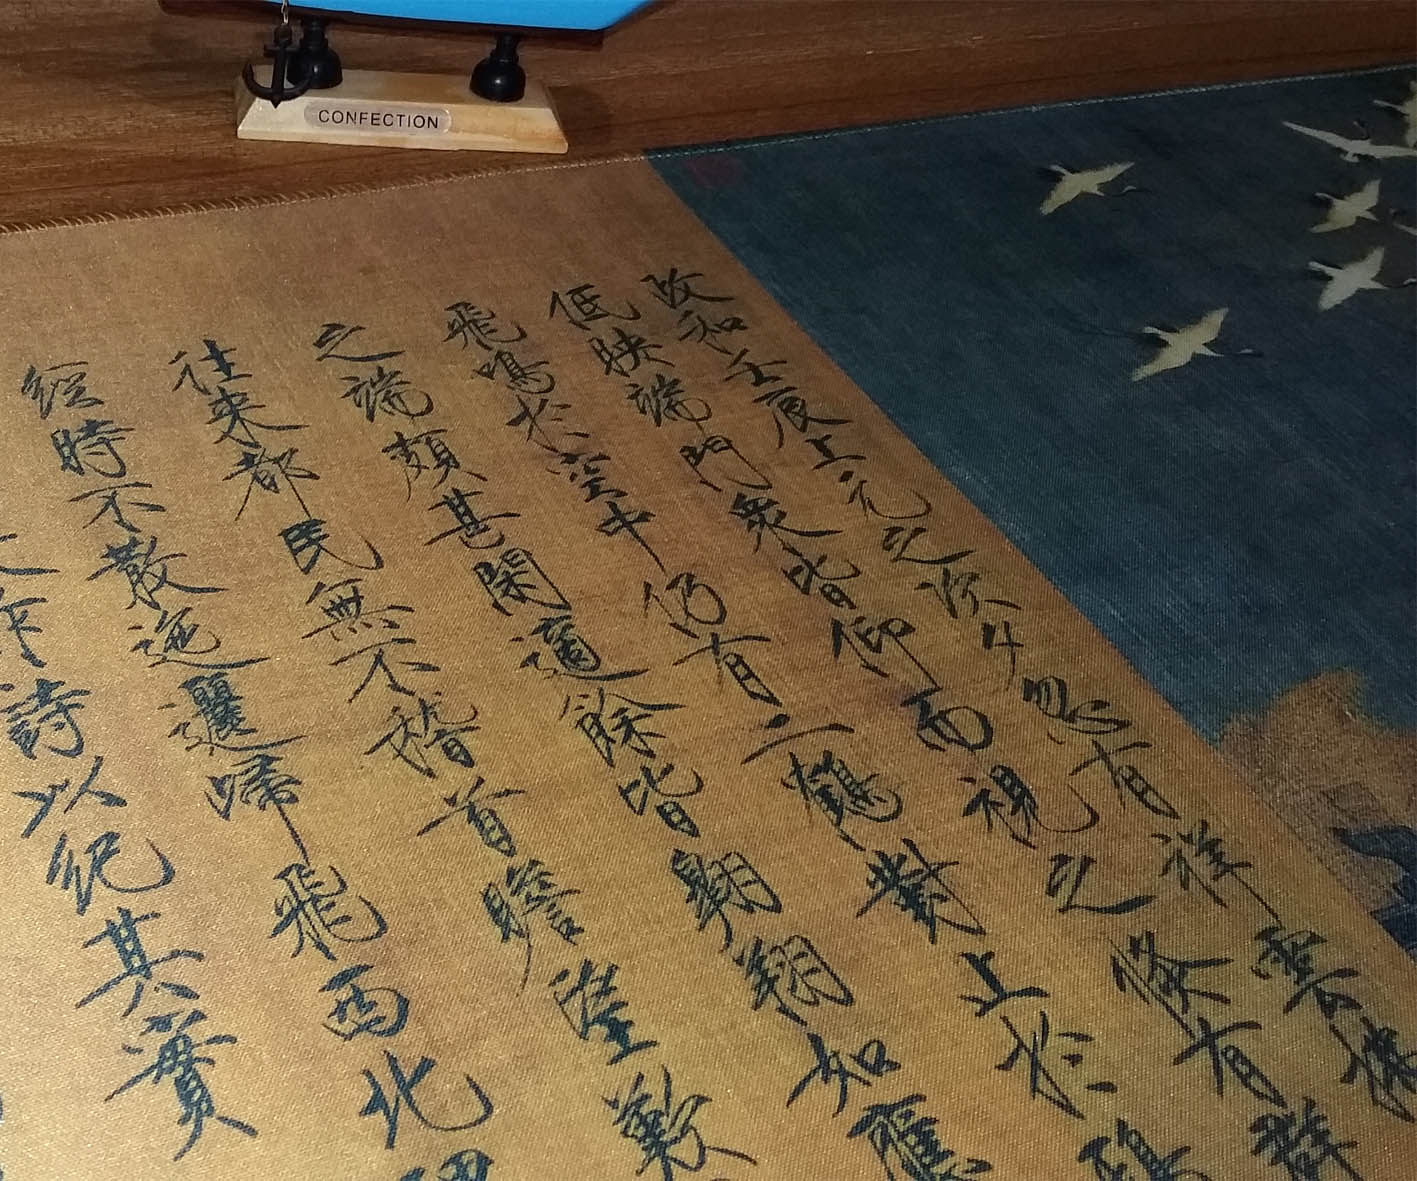 CONFECTION
政和壬辰上元之次夕忽有祥雲拂
低映端門眾皆仰而視之倏有群
飛鳴於空中仍有二鶴對止於鴟
之端頗甚閑適餘皆翱翔如應
往來都民無不稽首瞻望歎
經時不散迤邐歸飛西北
作詩以紀其實